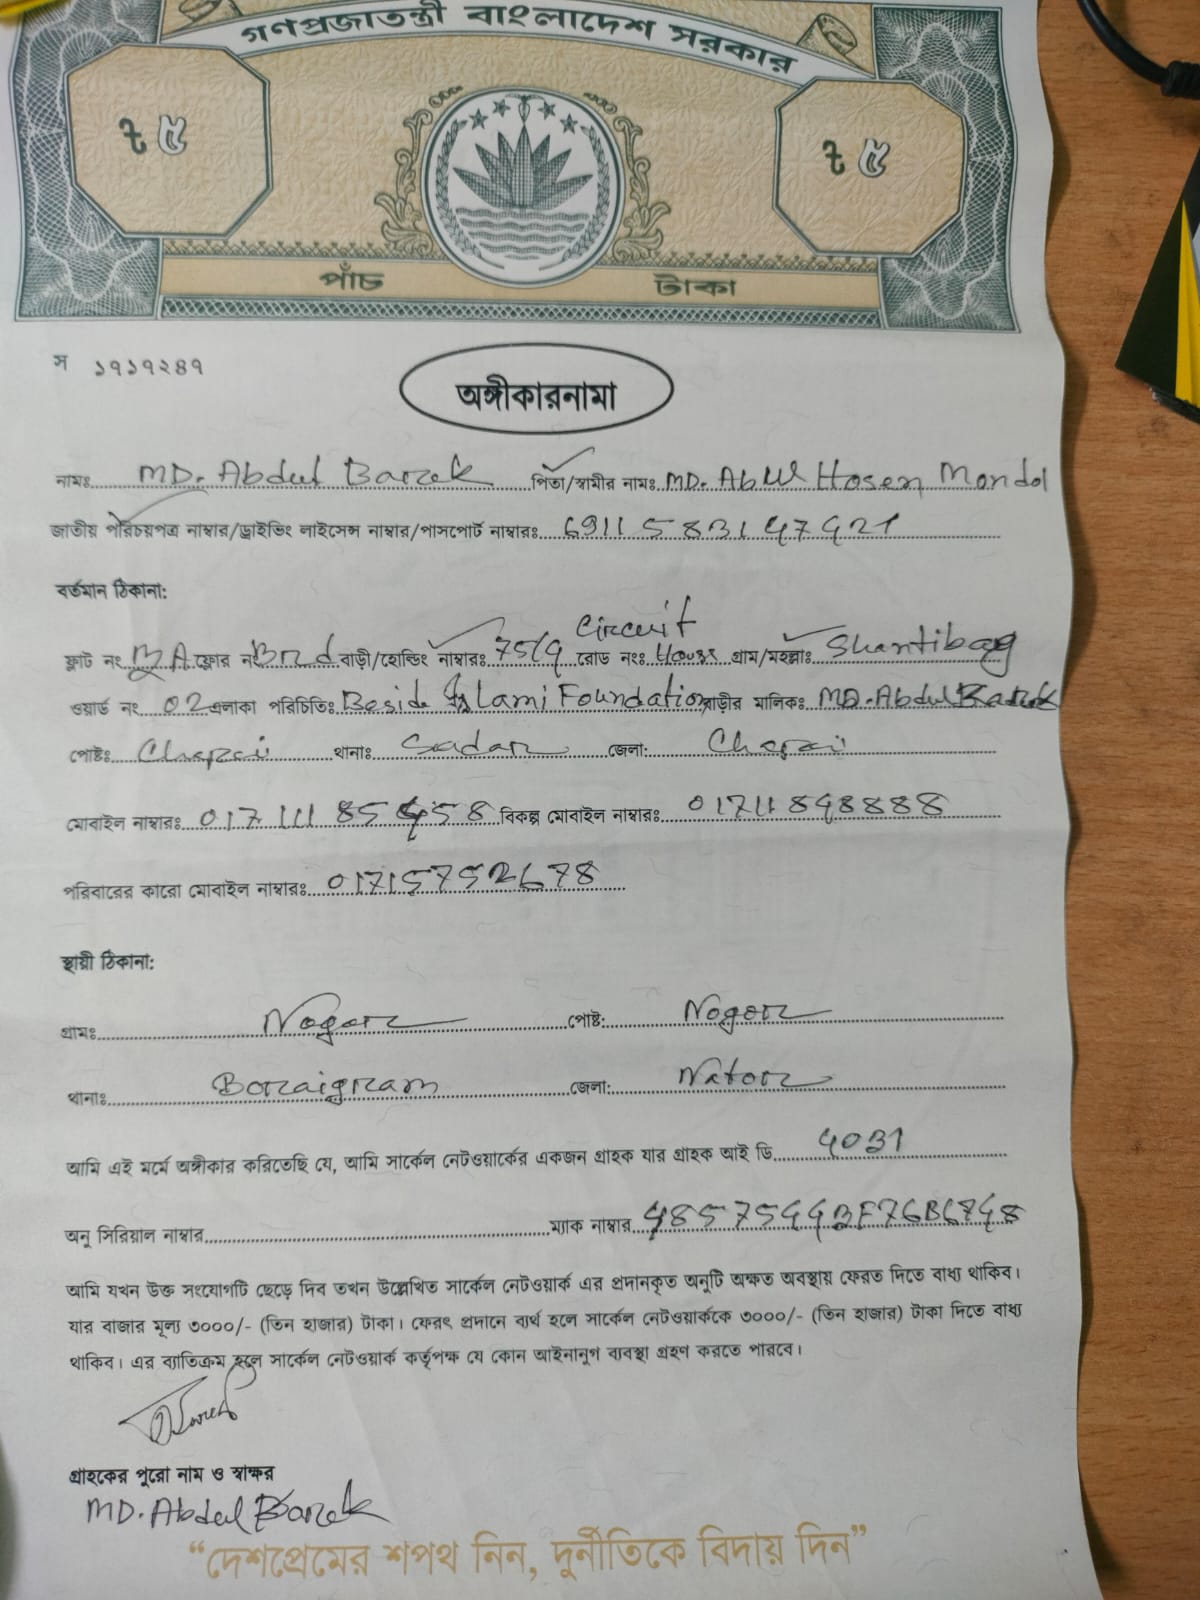 গণপ্রজাতন্ত্রী বাংলাদেশ সরকার
৳ ৫ ৳ ৫
পাঁচ টাকা
স ১৭১৭২৪৭
অঙ্গীকারনামা
নামঃ MD. Abdul Barek পিতা/স্বামীর নামঃ MD. Abul Hosen Mondol
জাতীয় পরিচয়পত্র নাম্বার/ড্রাইভিং লাইসেন্স নাম্বার/পাসপোর্ট নাম্বারঃ 6911583147421
বর্তমান ঠিকানা:
Circuit
ফ্লাট নং ফ্লোর নং বাড়ী/হোল্ডিং নাম্বারঃ 75/4 রোড নংঃ House গ্রাম/মহল্লাঃ Shantibag
ওয়ার্ড নং 02 এলাকা পরিচিতিঃ Beside Islami Foundation বাড়ীর মালিকঃ MD. Abdul Barek
পোষ্টঃ Chapai থানাঃ Sadar জেলা: Chapai
মোবাইল নাম্বারঃ 01711185458 বিকল্প মোবাইল নাম্বারঃ 01711848888
পরিবারের কারো মোবাইল নাম্বারঃ 01715752678
স্থায়ী ঠিকানা:
গ্রামঃ Nogor পোষ্ট: Nogor
থানাঃ Boraigram জেলা: Nator
আমি এই মর্মে অঙ্গীকার করিতেছি যে, আমি সার্কেল নেটওয়ার্কের একজন গ্রাহক যার গ্রাহক আই ডি 4031
অনু সিরিয়াল নাম্বার ম্যাক নাম্বার 48575443F76B6748
আমি যখন উক্ত সংযোগটি ছেড়ে দিব তখন উল্লেখিত সার্কেল নেটওয়ার্ক এর প্রদানকৃত অনুটি অক্ষত অবস্থায় ফেরত দিতে বাধ্য থাকিব।
যার বাজার মূল্য ৩০০০/- (তিন হাজার) টাকা। ফেরৎ প্রদানে ব্যর্থ হলে সার্কেল নেটওয়ার্ককে ৩০০০/- (তিন হাজার) টাকা দিতে বাধ্য
থাকিব। এর ব্যাতিক্রম হলে সার্কেল নেটওয়ার্ক কর্তৃপক্ষ যে কোন আইনানুগ ব্যবস্থা গ্রহণ করতে পারবে।
গ্রাহকের পুরো নাম ও স্বাক্ষর
MD. Abdul Barek
“দেশপ্রেমের শপথ নিন, দুর্নীতিকে বিদায় দিন”